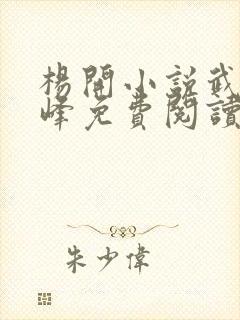 楊開小說武
峰免費閱讀
朱少偉